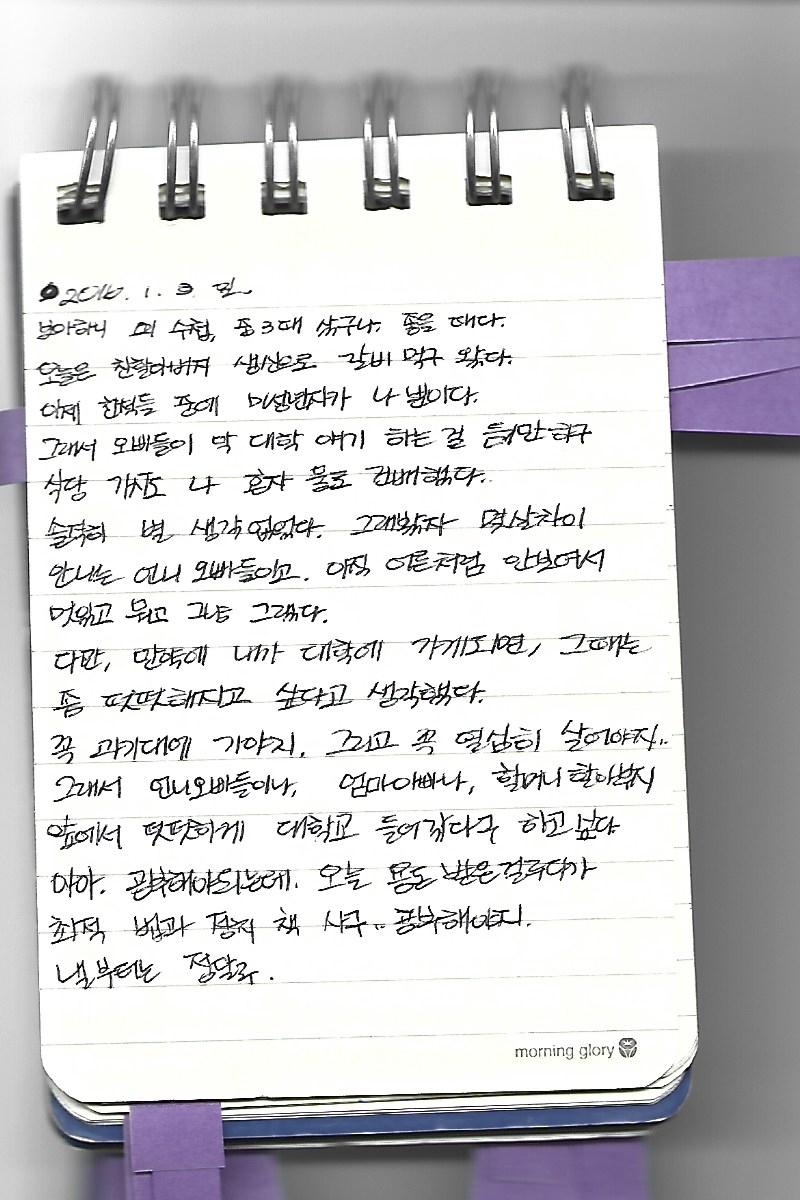 2016. 1. 3. 일.
보아하니 이 수첩, 중3때 샀구나. 좋을 때다.
오늘은 친할아버지 생신으로 갈비 먹구 왔다.
이제 친척들 중에 미성년자가 나 뿐이다.
그래서 오빠들이 막 대학 얘기 하는 걸 듣기만 하구
식당 가서도 나 혼자 물로 건배했다..
솔직히 별 생각 없었다. 그래봤자 몇살차이
안나는 언니 오빠들이고. 아직 어른처럼 안보여서
멋있고 뭐고 그냥 그랬다.
다만, 만약에 내가 대학에 가게되면, 그때는
좀 떳떳해지고 싶다고 생각했다.
꼭 과기대에 가야지. 그리고 꼭 열심히 살어야지..
그래서 언니오빠들이나, 엄마아빠나, 할머니 할아버지
앞에서 떳떳하게 대학교 들어갔다구 하고싶다
아아. 공부해야되는데. 오늘 용돈 받은걸루다가
최적 법과 정치 책 사구.. 공부해야지.
낼부터는 정말루.
morning glory